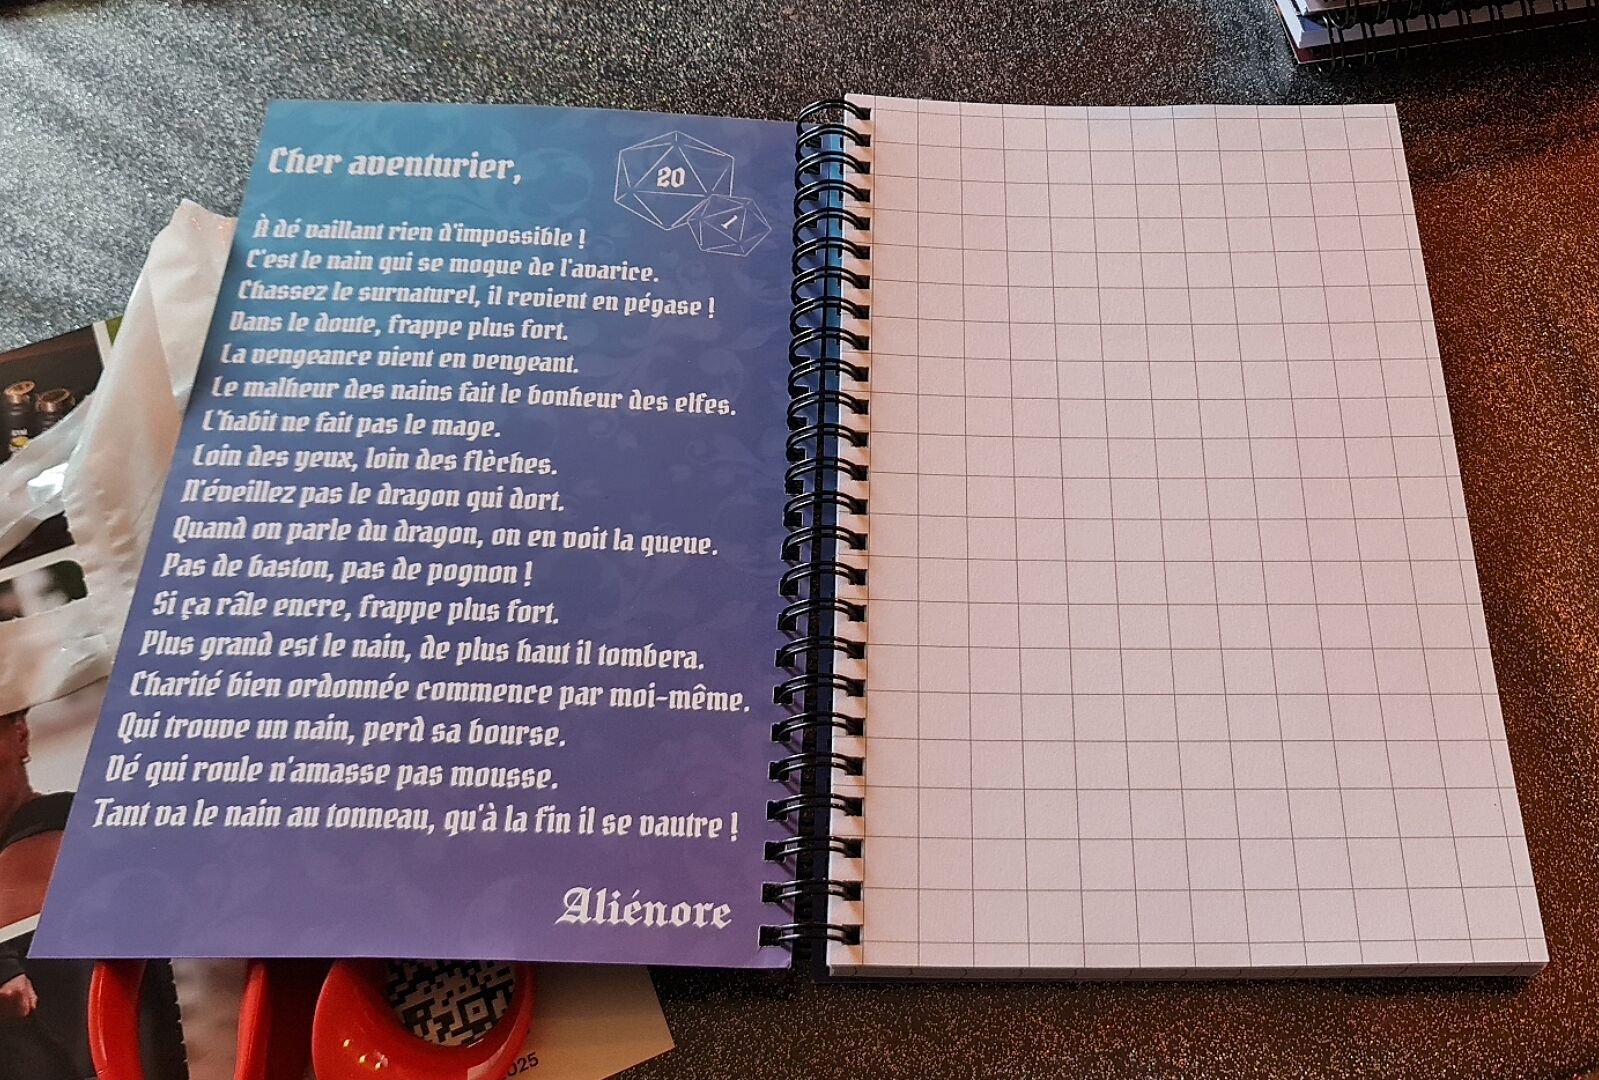 Cher aventurier,
20
1
À dé vaillant rien d'impossible !
C'est le nain qui se moque de l'avarice.
Chassez le surnaturel, il revient en pégase !
Dans le doute, frappe plus fort.
La vengeance vient en vengeant.
Le malheur des nains fait le bonheur des elfes.
L'habit ne fait pas le mage.
Loin des yeux, loin des flèches.
N'éveillez pas le dragon qui dort.
Quand on parle du dragon, on en voit la queue.
Pas de baston, pas de pognon !
Si ça râle encre, frappe plus fort.
Plus grand est le nain, de plus haut il tombera.
Charité bien ordonnée commence par moi-même.
Qui trouve un nain, perd sa bourse.
Dé qui roule n'amasse pas mousse.
Tant va le nain au tonneau, qu'à la fin il se vautre !
Aliénore